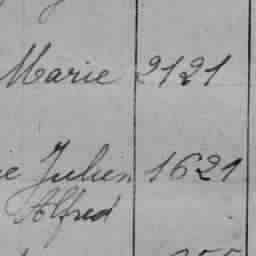 Marie 2121
ie Julien 1621
Alfred